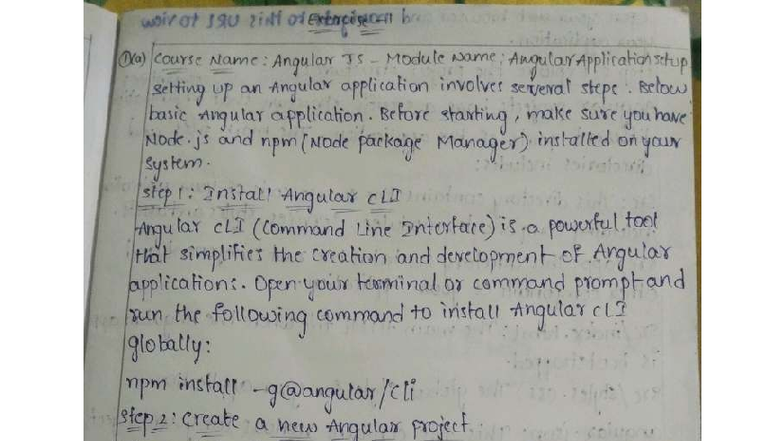 Exercise-11
1)(a) Course Name: Angular JS - Module Name: Angular Application setup
setting up an Angular application involves several steps. Below
basic Angular application. Before starting, make sure you have
Node.js and npm (Node package Manager) installed on your
system.
step 1: Install Angular CLI
Angular CLI (Command Line Interface) is a powerful tool
that simplifies the creation and development of Angular
applications. Open your terminal or command prompt and
run the following command to install Angular CLI
globally:
npm install -g@angular/cli
step 2: Create a new Angular project